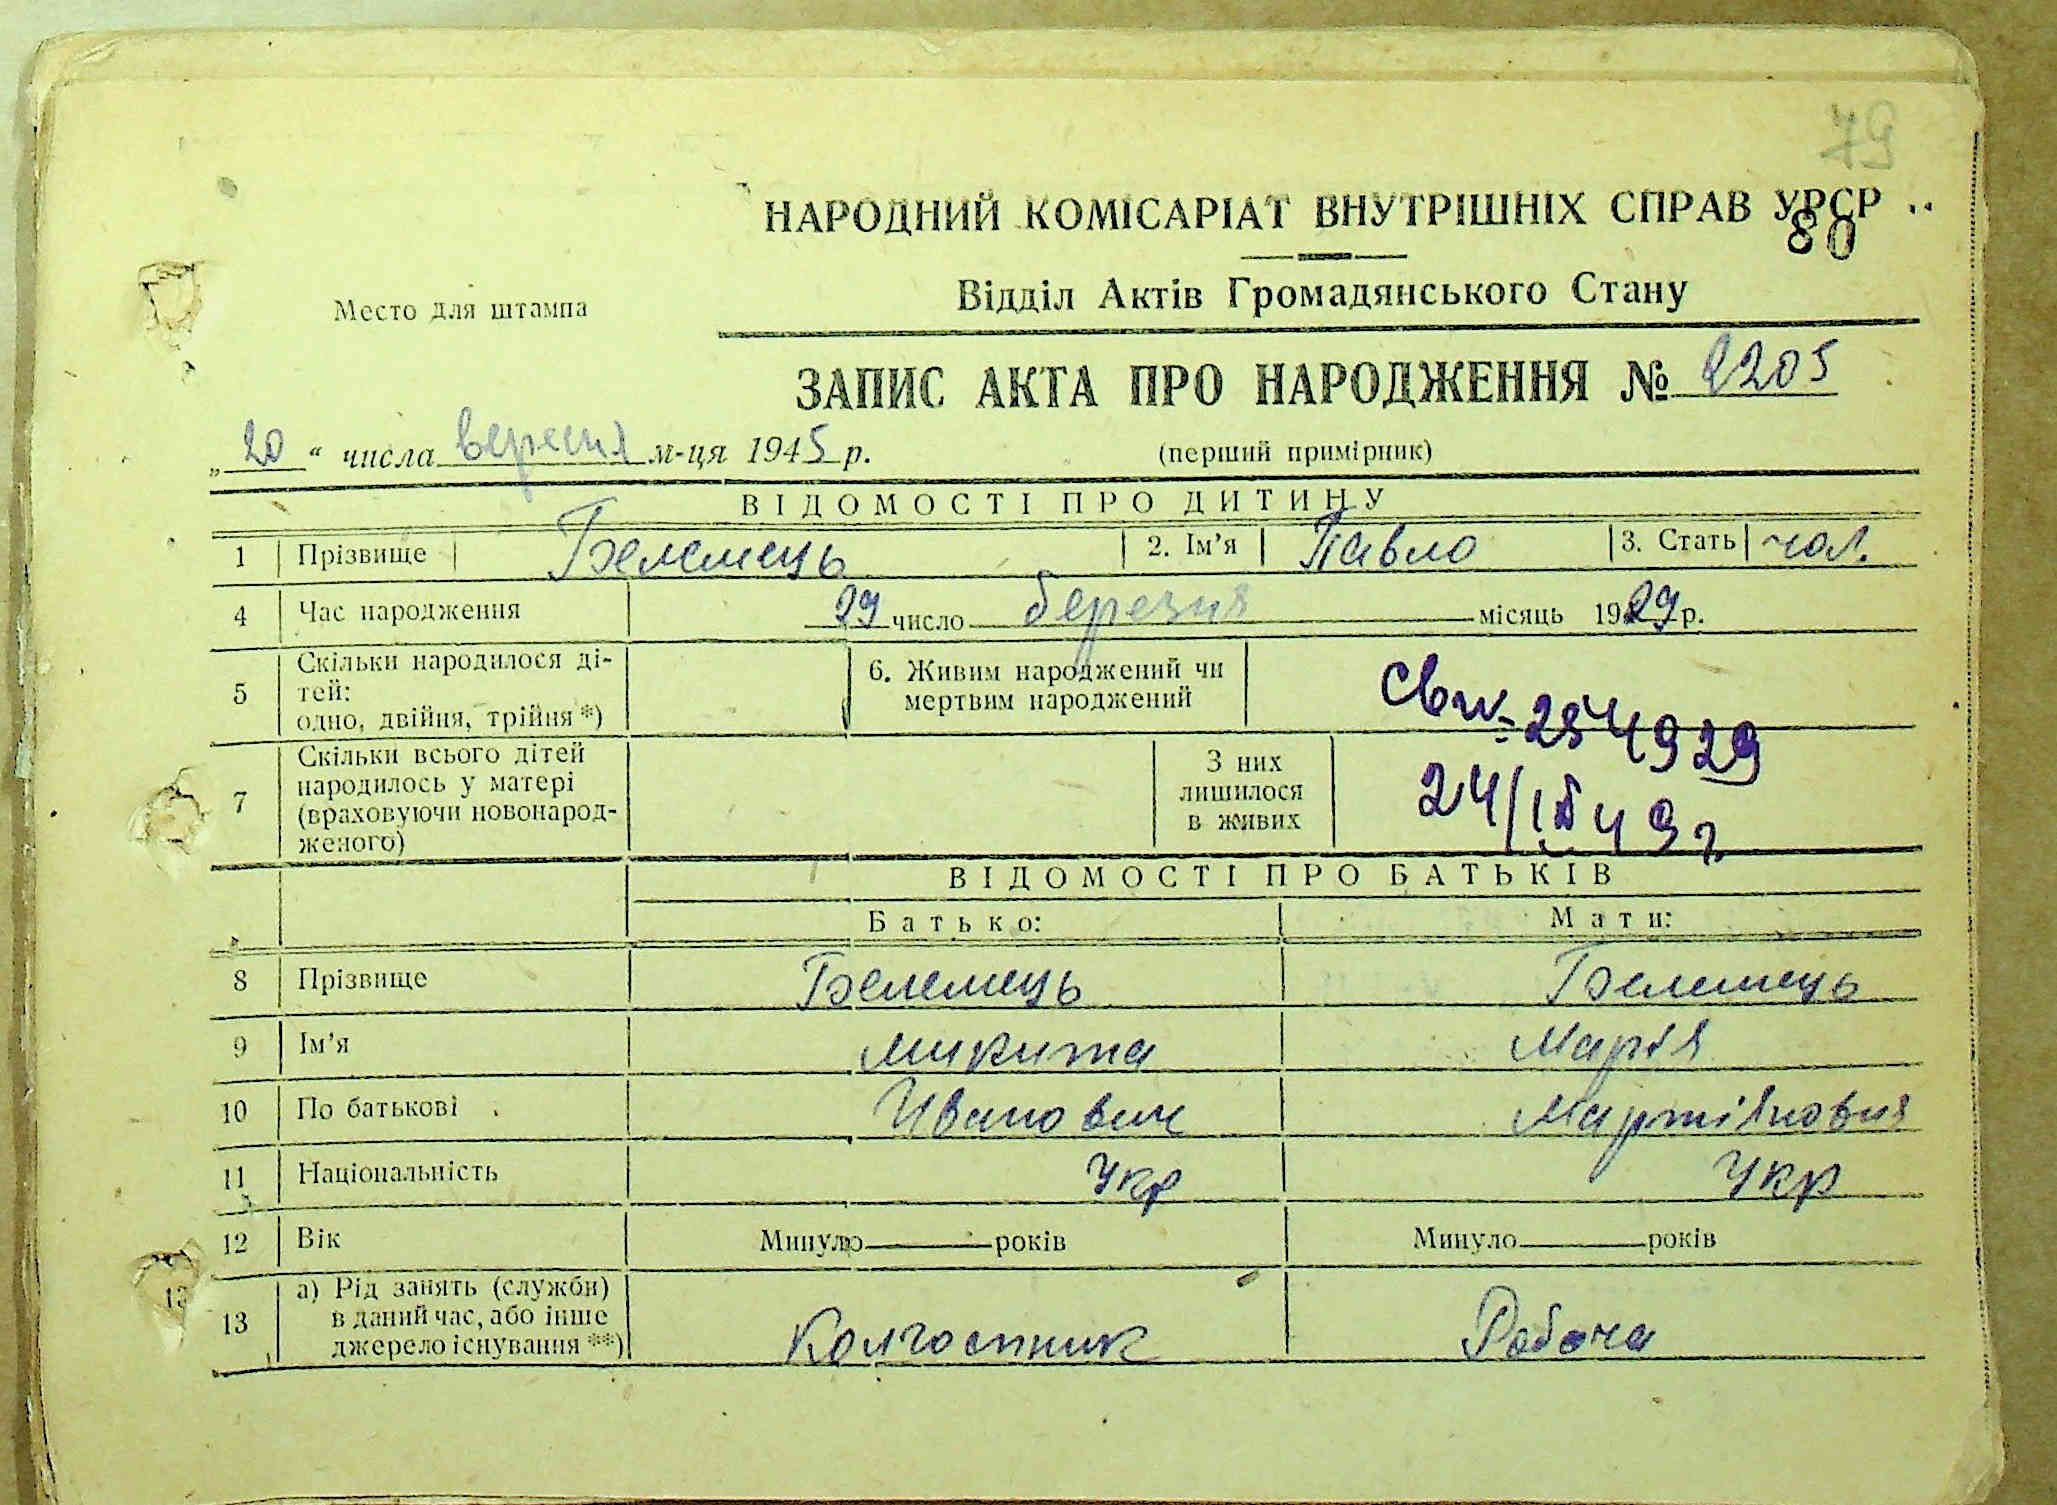 79
НАРОДНИЙ КОМІСАРІАТ ВНУТРІШНІХ СПРАВ УРСР
80
Место для штампа
Відділ Актів Громадянського Стану
ЗАПИС АКТА ПРО НАРОДЖЕННЯ № 2205
„20“ числа вересня м-ця 1945 р. (перший примірник)
ВІДОМОСТІ ПРО ДИТИНУ
1 Прізвище Белемець 2. Ім’я Павло 3. Стать чол.
4 Час народження 29 число березня місяць 1929 р.
5 Скільки народилося ді-
тей:
одно, двійня, трійня *)
6. Живим народжений чи
мертвим народжений
254929
7 Скільки всього дітей
народилось у матері
(враховуючи новонарод-
женого)
З них
лишилося
в живих
49 г
ВІДОМОСТІ ПРО БАТЬКІВ
Батько: Мати:
8 Прізвище Белемець Белемець
9 Ім’я Микита Марія
10 По батькові Иванович Мартіяновна
11 Національність Укр Укр
12 Вік Минуло років Минуло років
13 а) Рід занять (служби)
в даний час, або інше
джерело існування **)
Колгоспник Робоча
13